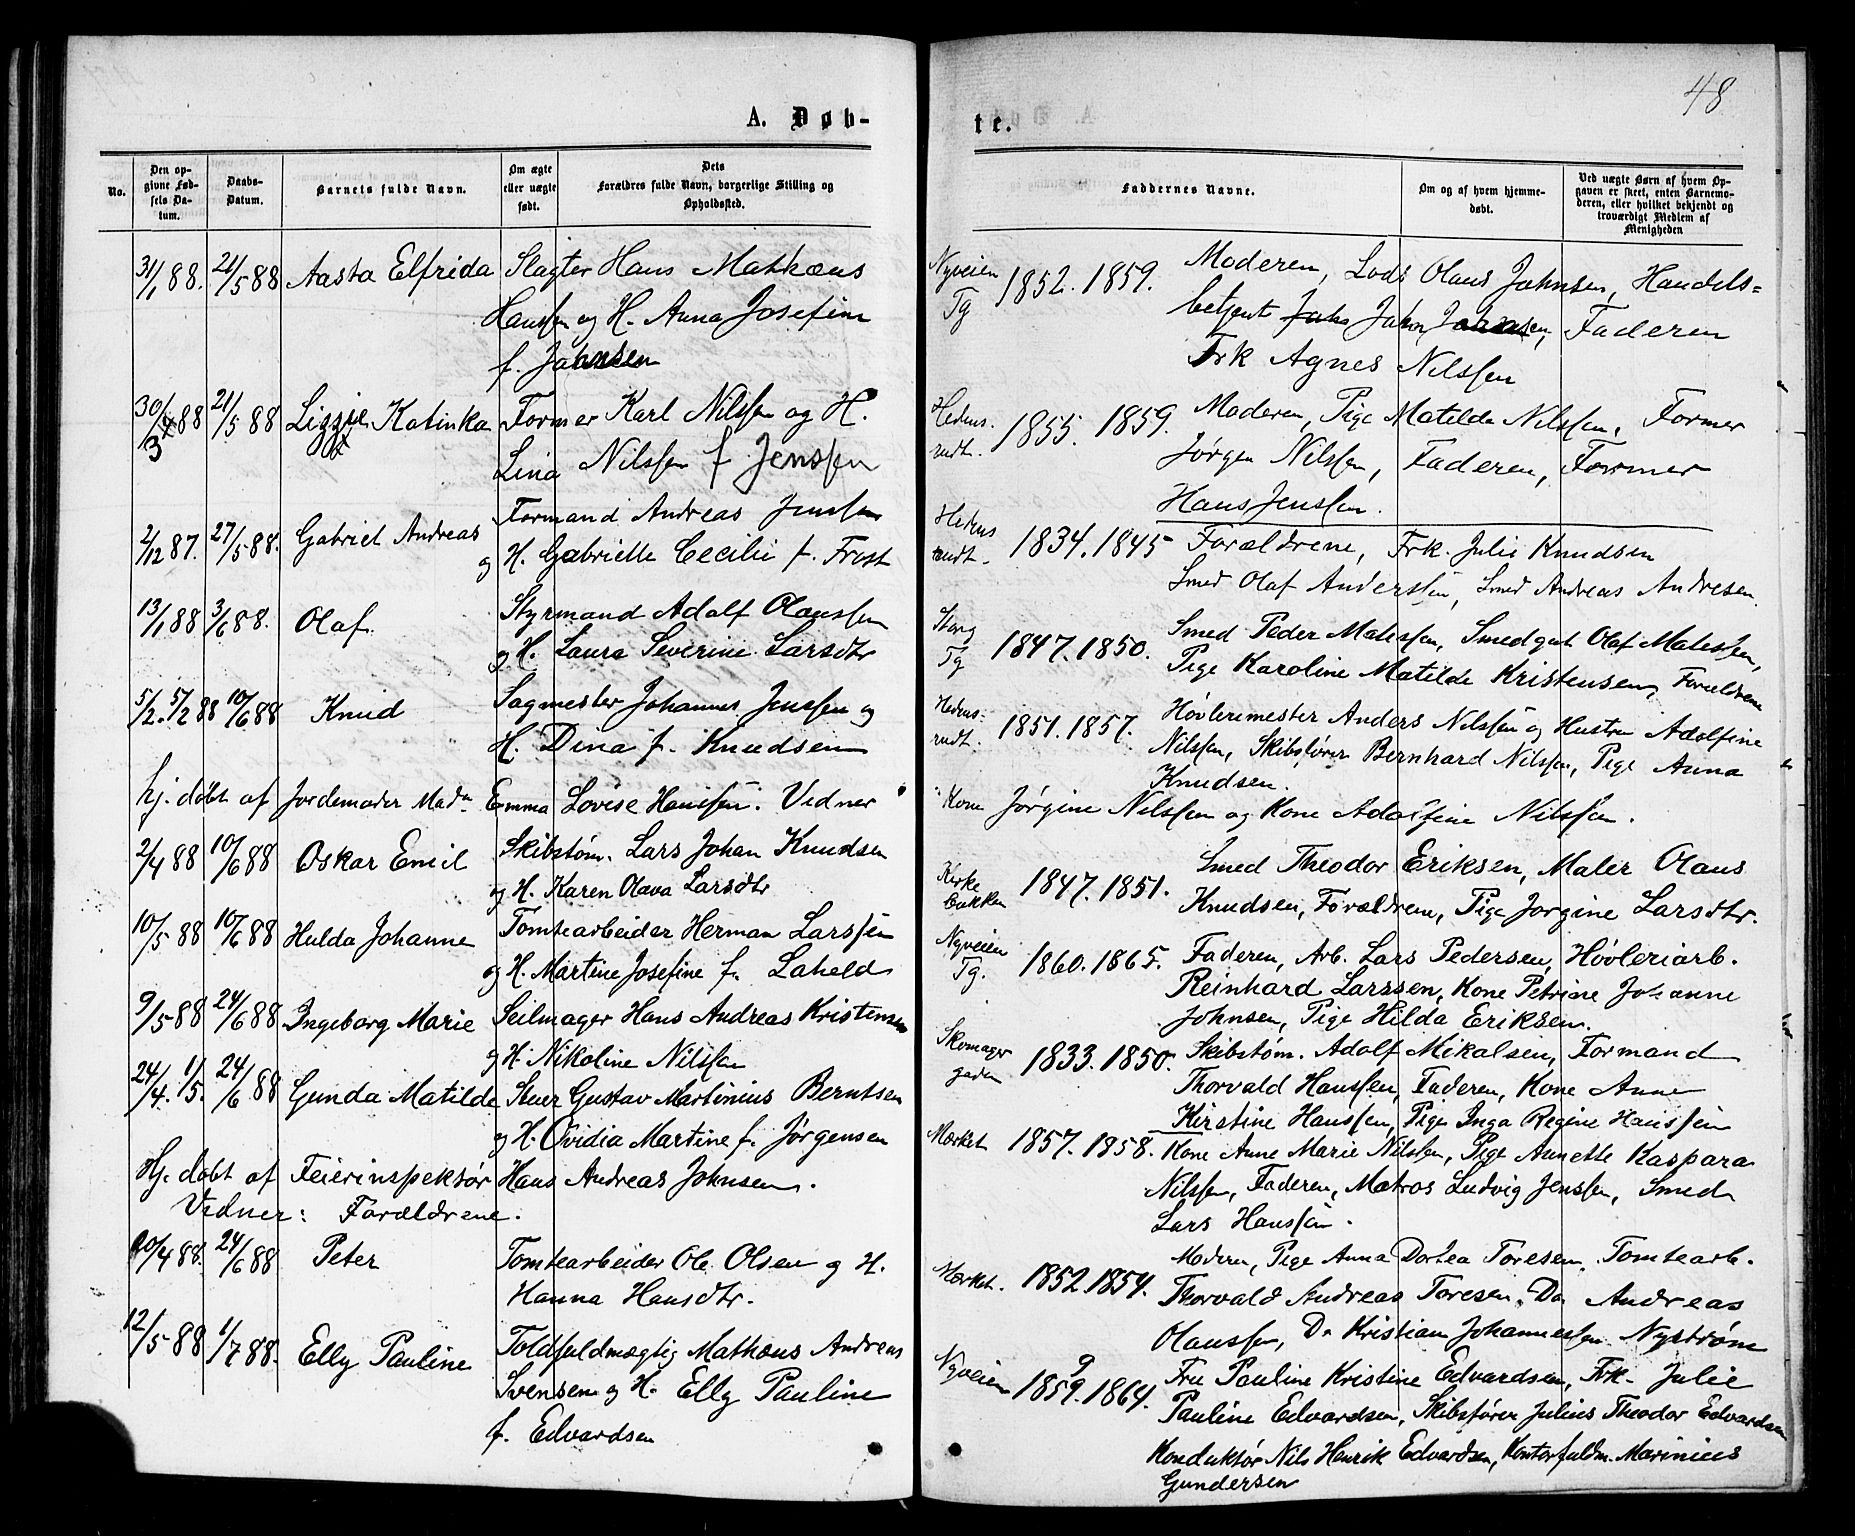 48
A. Døb-
te.
No.
Den op-
givne Fød-
sels Da-
tum.
Daabs-
Datum.
Barnets fulde Navn.
Om ægte
eller uægte
født.
Dets
Forældres fulde Navn, borgerlige Stilling og
Opholdssted.
Faddernes Navne.
Om og af hvem hjemme-
døbt.
Ved uægte Børn af hvem Op-
gaven er skeet, enten Barnemo-
deren, eller hvilket bekjendt og
troværdigt Medlem af
Menigheden
31/1 88. 21/5 88 Aasta Elfrida Slagter Hans Mathæus
Hanssen og H. Anna Josefine
f. Johnsen
Nyveien
Tg 1852. 1859. Moderen, Lods Olaus Johnsen, Handels=
betjent Johan Johnsen, Faderen
Frk Agnes Nilssen
30/3 88 21/5 88 Lizzie Katinka Former Karl Nilssen og H.
Lina Nilssen f Jenssen
Hedens-
rudt. 1855. 1859. Moderen, Pige Matilda Nilssen, Former
Jørgen Nilssen, Faderen, Former
Hans Jenssen.
2/12 87. 27/5 88. Gabriel Andreas Formand Andreas Jenssen
og H. Gabrielle Cecilie f. Frost
Hedens
rudt. 1834. 1845 Forældrene, Frk. Julie Knudsen
Smed Olaf Anderssen, Smed Andreas Andresen.
13/1 88 3/6 88. Olaf Styrmand Adolf Olaussen
og H. Laura Severine Larsdtr
Storg
Tg 1847. 1850. Smed Peder Matissen, Smedgut Olaf Matissen,
Pige Karoline Matilde Kristensen, Forældrene
5/2. 5/2 88 10/6 88 Knud Sagmester Johannes Jenssen og
H. Dina f. Knudsen
Hedens-
rudt. 1851. 1857. Høvlerimester Anders Nilssen og Hustru Adolfine
Nilssen, Skibsfører Bernhard Nilssen, Pige Anna
Knudsen.
hj. døbt af Jordemoder Mad. Emma Lovise Hanssen. Vidner
Kone Jørgine Nilssen og Kone Adolfine Nilssen.
2/4 88 10/6 88 Oskar Emil Skibstøm. Lars Johan Knudsen
og H. Karen Olava Larsdtr
Kirke
bakken 1847. 1851. Smed Theodor Eriksen, Maler Olaus
Knudsen, Forældrene, Pige Jørgine Larsdtr.
10/5 88 10/6 88 Hulda Johanne Tomtearbeider Herman Larssen
og H. Martine Josefine f. Laheld
Nyveien
Tg. 1860. 1865. Faderen, Arb. Lars Pedersen, Høvleriarb.
Reinhard Larssen, Kone Petrine Johanne
Johnsen, Pige Hilda Eriksen.
9/5 88 24/6 88 Ingeborg Marie Seilmager Hans Andreas Kristensen
og H. Nikoline Nilssen
Skomager
gaden 1833. 1850. Skibstøm. Adolf Mikalsen, Formand
Thorvald Hanssen, Faderen, Kone Anne
Kirstine Hanssen, Pige Inga Regine Hanssen
24/4. 1/5. 24/6 88 Gunda Matilde Stuer Gustav Martinius Berntsen
og H. Ovidia Martine f. Jørgensen
Mærket 1857. 1858. Kone Anne Marie Nilssen, Pige Annette Kaspara
Nilssen, Faderen, Matros Ludvig Jenssen, Smed
Lars Hanssen.
Hj. døbt af Feierinspektør Hans Andreas Johnsen.
Vidner: Forældrene.
20/4 88. 24/6 88 Peter Tomtearbeider Ole Olsen og H.
Hanna Hansdtr.
Mærket. 1852 1854. Moderen, Pige Anna Dortea Toresen, Tomtearb.
Thorvald Andreas Toresen, Do Andreas
Olaussen, Do Kristian Johannessen Nystrøm
12/5 88 1/7 88. Elly Pauline Toldfuldmægtig Mathæus Andreas
Svensen og H. Elly Pauline
f. Edvardsen
Nyveien 1859. 9 1864. Fru Pauline Kristine Edvardsen, Frk. Julie
Pauline Edvardsen, Skibsfører Julius Theodor Edvardsen
Konduktør Nils Henrik Edvardsen, Kontorfuldm. Marinius
Gundersen